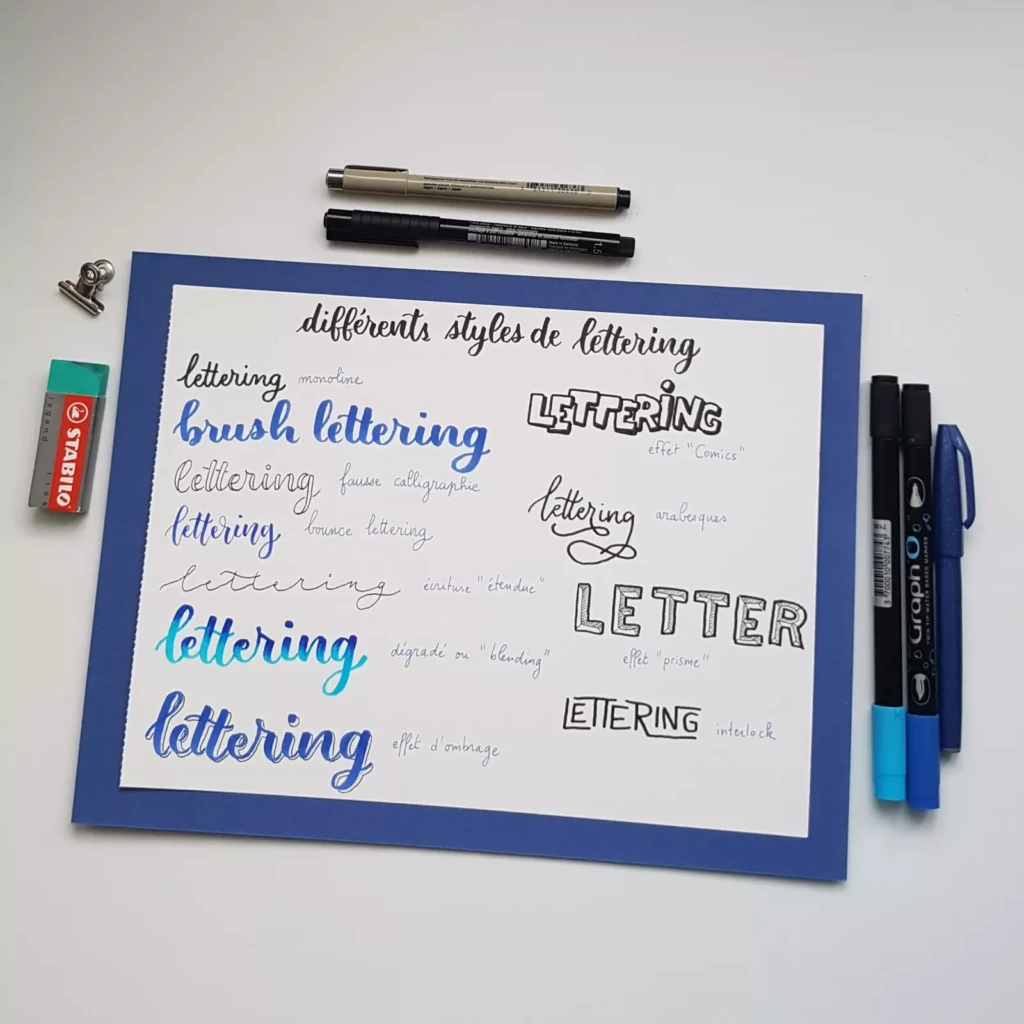 différents styles de lettering
lettering monoline
brush lettering
lettering fausse calligraphie
lettering bounce lettering
lettering écriture "étendue"
lettering dégradé ou "blending"
lettering effet d'ombrage
LETTERING
effet "Comics"
lettering arabesques
LETTER
effet "prisme"
LETTERING interlock
STABILO
legend
1.5
Graph'O
TWIN TIP WATER BASED MARKER